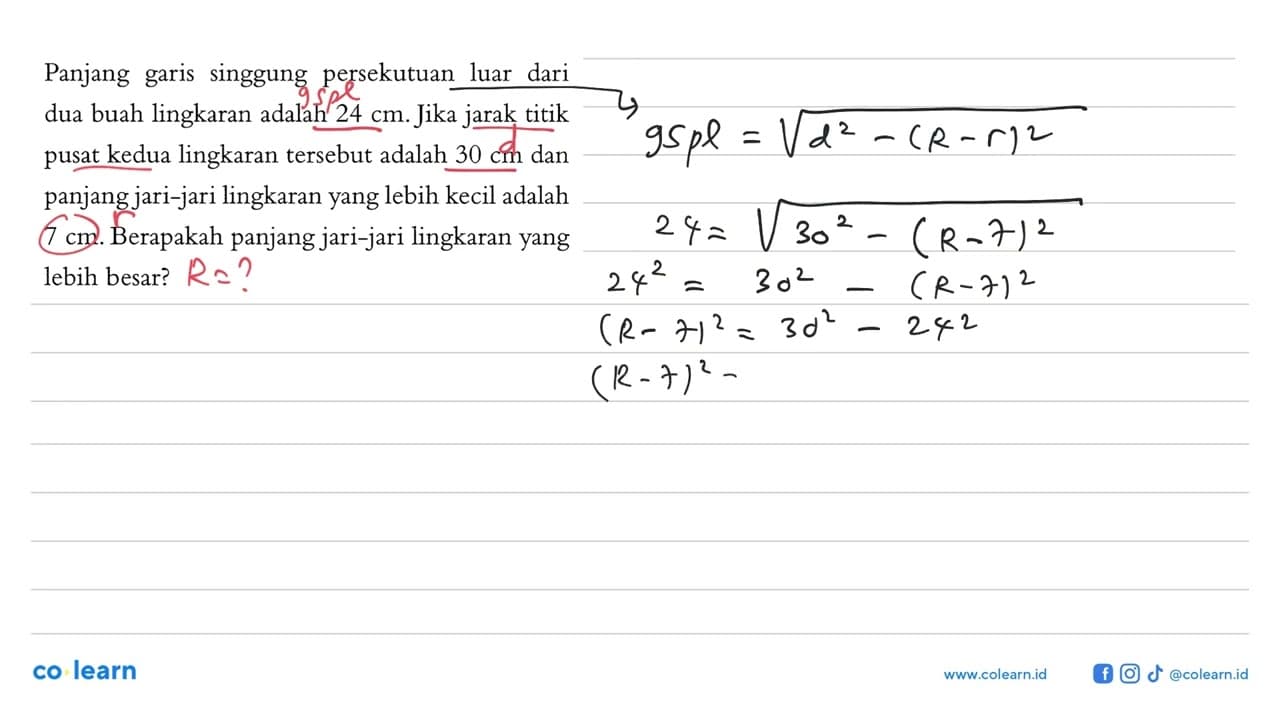 Panjang garis singgung persekutuan luar dari
gspl
dua buah lingkaran adalah 24 cm. Jika jarak titik
d
pusat kedua lingkaran tersebut adalah 30 cm dan
panjang jari-jari lingkaran yang lebih kecil adalah
r
7 cm. Berapakah panjang jari-jari lingkaran yang
lebih besar? R = ?
gspl = √d² - (R-r)²
24 = √30² - (R-7)²
24² = 30² - (R-7)²
(R-7)² = 30² - 24²
(R-7)² -
co learn
www.colearn.id
@colearn.id